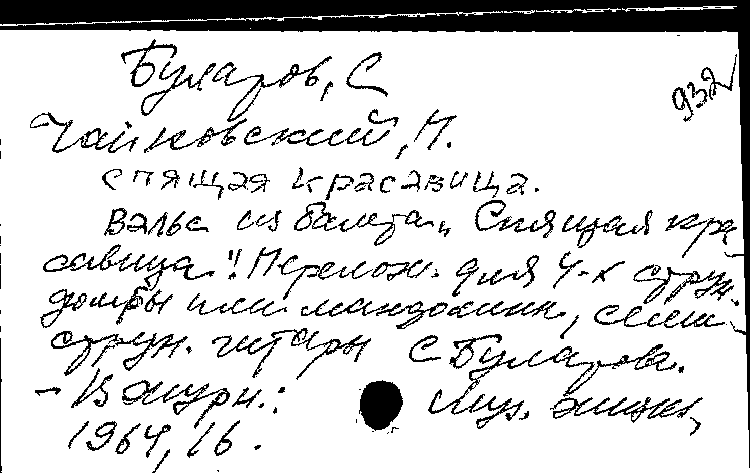 Буларов, С
932
Чайковский, П.
спящая красавица.
Вальс из балета „Спящая кра-
савица". Перелож. для 4-х струн.
домры или мандолины, семи-
струн. гитары С Буларова.
- В журн.: Муз. жизнь,
1964, 16.